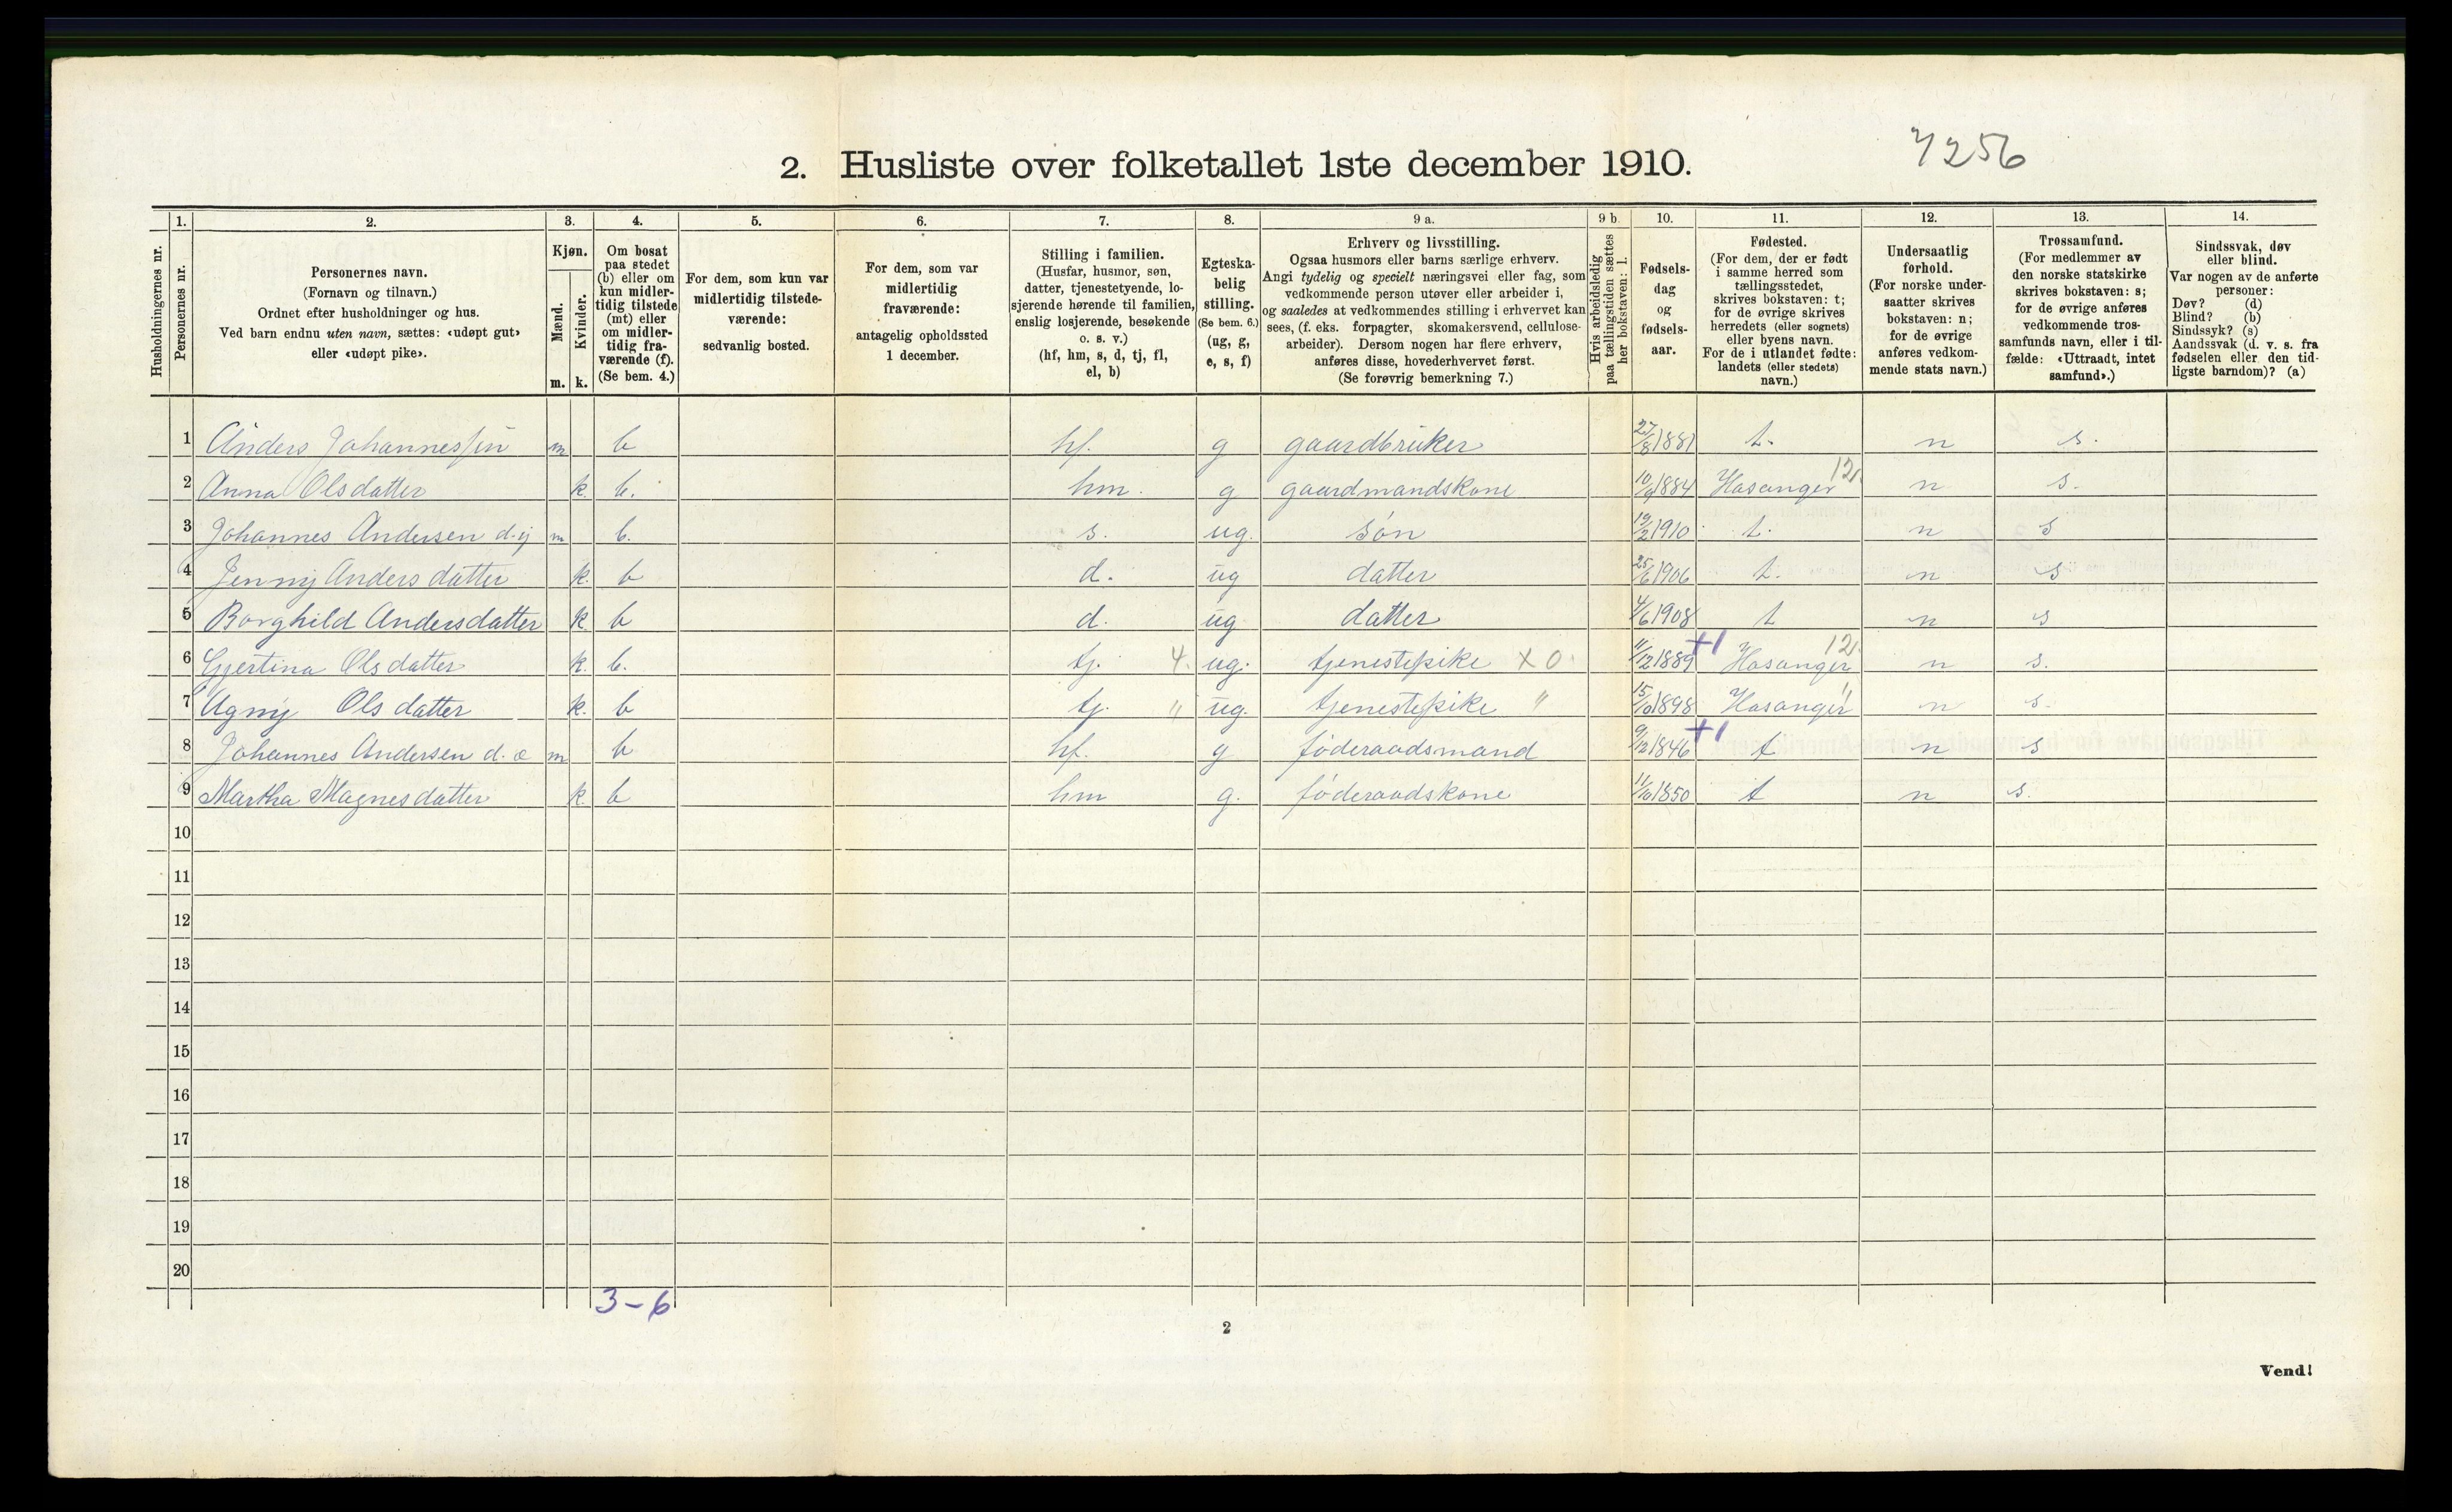 4256
2. Husliste over folketallet 1ste december 1910.
Husholdningernes nr.
1. Personernes nr.
2. Personernes navn.
(Fornavn og tilnavn.)
Ordnet efter husholdninger og hus.
Ved barn endnu uten navn, sættes: «udøpt gut»
eller «udøpt pike».
3. Kjøn.
Mænd. m.
Kvinder. k.
4. Om bosat
paa stedet
(b) eller om
kun midler-
tidig tilstede
(mt) eller
om midler-
tidig fra-
værende (f).
(Se bem. 4.)
5. For dem, som kun var
midlertidig tilstede-
værende:
sedvanlig bosted.
6. For dem, som var
midlertidig
fraværende:
antagelig opholdssted
1 december.
7. Stilling i familien.
(Husfar, husmor, søn,
datter, tjenestetyende, lo-
sjerende hørende til familien,
enslig losjerende, besøkende
o. s. v.)
(hf, hm, s, d, tj, fl,
el, b)
8. Egteska-
belig
stilling.
(Se bem. 6.)
(ug, g,
e, s, f)
9 a. Erhverv og livsstilling.
Ogsaa husmors eller barns særlige erhverv.
Angi tydelig og specielt næringsvei eller fag, som
vedkommende person utøver eller arbeider i,
og saaledes at vedkommendes stilling i erhvervet kan
sees, (f. eks. forpagter, skomakersvend, cellulose-
arbeider). Dersom nogen har flere erhverv,
anføres disse, hovederhvervet først.
(Se forøvrig bemerkning 7.)
9 b. Hvis arbeidsledig
paa tællingstiden sættes
her bokstaven: l.
10. Fødsels-
dag
og
fødsels-
aar.
11. Fødested.
(For dem, der er født
i samme herred som
tællingsstedet,
skrives bokstaven: t;
for de øvrige skrives
herredets (eller sognets)
eller byens navn.
For de i utlandet fødte:
landets (eller stedets)
navn.)
12. Undersaatlig
forhold.
(For norske under-
saatter skrives
bokstaven: n;
for de øvrige
anføres vedkom-
mende stats navn.)
13. Trossamfund.
(For medlemmer av
den norske statskirke
skrives bokstaven: s;
for de øvrige anføres
vedkommende tros-
samfunds navn, eller i til-
fælde: «Uttraadt, intet
samfund».)
14. Sindssvak, døv
eller blind.
Var nogen av de anførte
personer:
Døv? (d)
Blind? (b)
Sindssyk? (s)
Aandssvak (d. v. s. fra
fødselen eller den tid-
ligste barndom)? (a)
1 Anders Johannessen m b hf. g gaardbruker 27/8 1881 t. n s.
2 Anna Olsdatter k. b. hm. g gaardmandskone 10/9 1884 Hosanger 12 n s.
3 Johannes Andersen d.y m b. s. ug. søn 19/2 1910 t. n s
4 Jenny Andersdatter k. b d. ug datter 25/6 1906 t. n s
5 Borghild Andersdatter k. b d. ug datter 4/6 1908 t n s
6 Gjertina Olsdatter k. b. tj. 4. ug. tjenestepike X 0 11/12 1889 +1 Hosanger 12 n s.
7 Agny Olsdatter k. b tj. " ug. tjenestepike " 15/10 1898 Hosanger " n s.
8 Johannes Andersen d. æ m b hf. g føderaadsmand 9/12 1846 +1 t n s
9 Martha Magnesdatter k. b hm g. føderaadskone 11/10 1850 t n s.
10
11
12
13
14
15
16
17
18
19
20
3-6
2
Vend!